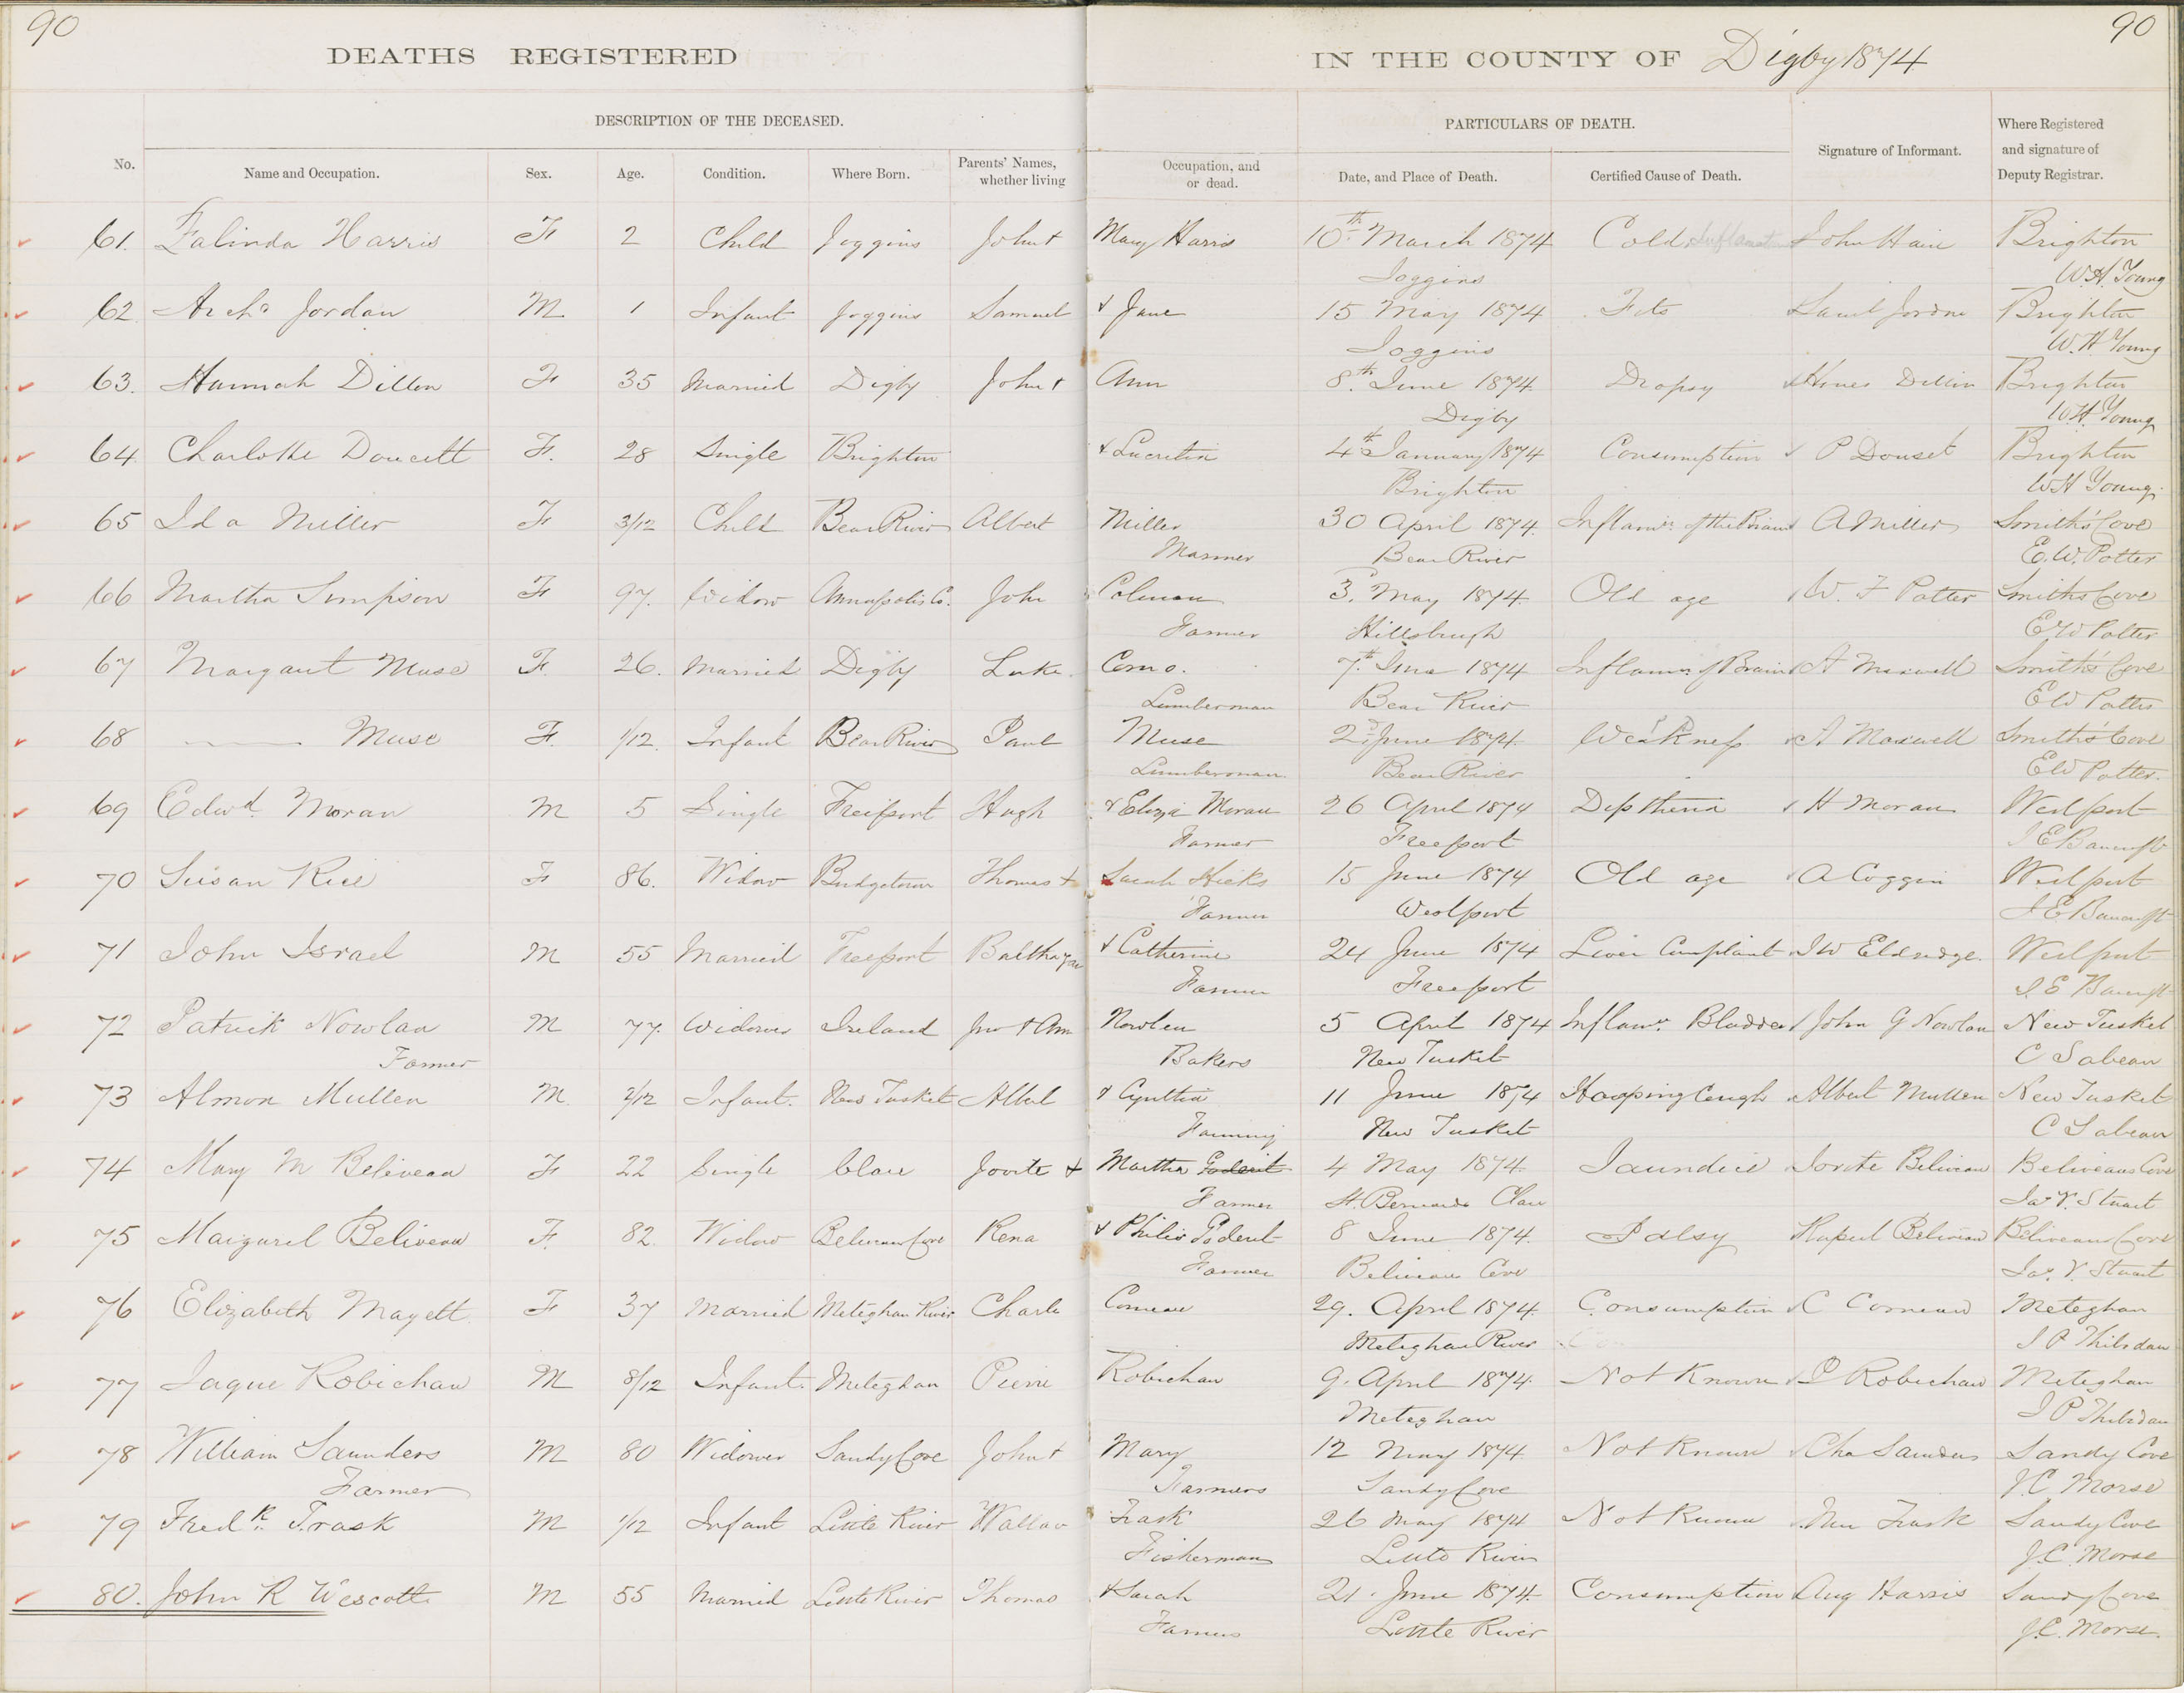 90
90
DEATHS REGISTERED IN THE COUNTY OF Digby 1874
DESCRIPTION OF THE DECEASED. PARTICULARS OF DEATH.
No. Name and Occupation. Sex. Age. Condition. Where Born. Parents' Names, whether living Occupation, and or dead. Date, and Place of Death. Certified Cause of Death. Signature of Informant. Where Registered and signature of Deputy Registrar.
61. Falinda Harris F 2 Child Joggins John + Mary Harris 10th March 1874 Cold John Hain Brighton
Joggins W.H. Young
62 Archd Jordan M 1 Infant Joggins Samuel & Jane 15 May 1874 Fits Saml Jordne Brighton
Joggins W.H Young
63. Hannah Dillon F 35 Married Digby John + Ann 8th June 1874 Dropsy Dillin Brighton
Digby W.H. Young
64 Charlotte Doucett F. 28 Single Brighton & Lucretia 4th January 1874 Consumption P Douset Brighton
Brighton W H Young
65 Ida Miller F 3/12 Child Bear River Albert Miller 30 April 1874. Inflamn. of the Brain A Miller Smith's Cove
Mariner Bear River E. W. Potter
66 Martha Simpson F 97. Widow Annapolis Co. John Colman 3. May 1874. Old age W. F Potter Smiths Cove
Farmer Hillsburgh E W Potter
67 Margaret Muse F. 26. Married Digby Luke Como. 7th June 1874 Inflamn. of Brain A Maxwell Smith's Cove
Lumberman Bear River E W Potter
68 Muse F. 1/12. Infant Bear River Paul Muse 2d June 1874. Weakness A Maxwell Smith's Cove
Lumberman Bear River E W Potter.
69 Edwd. Moran M 5 Single Freeport Hugh & Eliza Moran 26 April 1874 Diptheria H Moran Westport
Farmer Freeport J E Bancroft
70 Susan Rice F 86. Widow Bridgetown Thomas + Sarah Hicks 15 June 1874 Old age A Coggin Westport
Farmer Westport J E Bancroft
71 John Israel M 55 Married Freeport Balthazar & Catherine 24 June 1874 Liver Complaint J W Eldridge. Westport
Farmer Freeport J. E Bancroft
72 Patrick Nowlan M 77. Widower Ireland Jno + Ann Nowlen 5 April 1874 Inflamn. Bladder John G Nowlan New Tusket
Farmer Bakers New Tusket C Sabean
73 Almon Mullen M. 2/12 Infant. New Tusket Albert & Cynthia 11 June 1874 Hooping Cough Albert Mullen New Tusket
Farming New Tusket C Sabean
74 Mary M Beliveau F 22 Single Clare Jovite & Martha Goderit 4 May 1874. Jaundice Jovite Beliveau Beliveaus Cove
Farmer St. Bernards Clare Jas. V. Stuart
75 Margaret Beliveau F. 82. Widow Beliveau Cove Rena & Goderit 8 June 1874. Palsy Beliveau Beliveau Cove
Farmer Beliveau Cove Jas. V. Stuart
76 Elizabeth Mayett F 37 Married Meteghan River Charls Comeau 29. April 1874. Consumption C Comeau Meteghan
Meteghan River J P Thibodau
77 Jaque Robichau M 8/12 Infant. Meteghan Pierre Robichau 9. April 1874. Not Known P Robichau Meteghan
Meteghan J P Thibodau
78 William Saunders M 80 Widower Sandy Cove John + Mary 12 May 1874. Not Known Cha Saunders Sandy Cove
Farmer Farmers Sandy Cove J. C. Morse
79 Fredk. Trask M 1/12 Infant Little River Wallac Trask 26 May 1874 Not Known Trask Sandy Cove
Fisherman Little River J. C. Morse
80. John R Wescott M 55 Married Little River Thomas & Sarah 21. June 1874. Consumption Aug Harris Sandy Cove
Farmers Little River J. C. Morse.